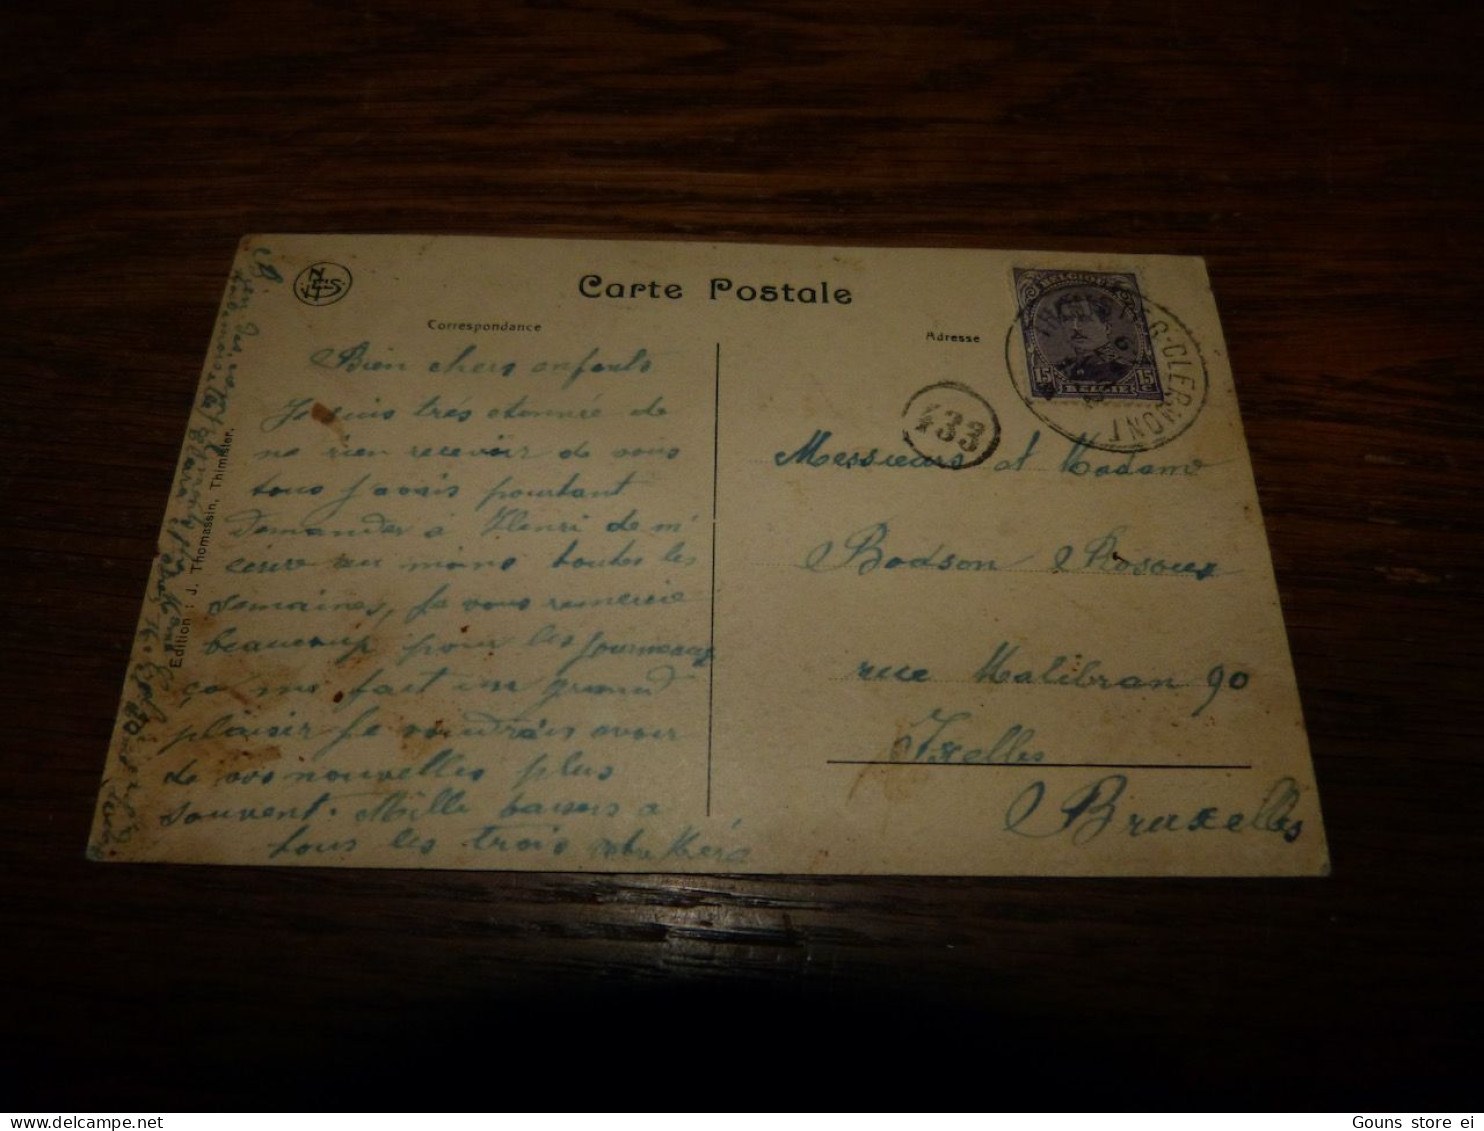 Carte Postale
Correspondance
Adresse
BELGIQUE
15 15
BELGIE
CLERMONT
433
Bien chers enfants
Je suis très étonnée de
ne rien recevoir de vous
tous j'avais pourtant
demander à Henri de m'
écrire au moins toutes les
semaines, je vous remercie
beaucoup pour les journeaux
ça me fait un grand
plaisir je voudrais avoir
de vos nouvelles plus
souvent. Mille baisers a
tous les trois votre Mère
Messieurs et Madame
Bodson Rosoux
rue Malibran 90
Ixelles
Bruxelles
Edition : J. Thomassin, Thimister.
Gouns store ei